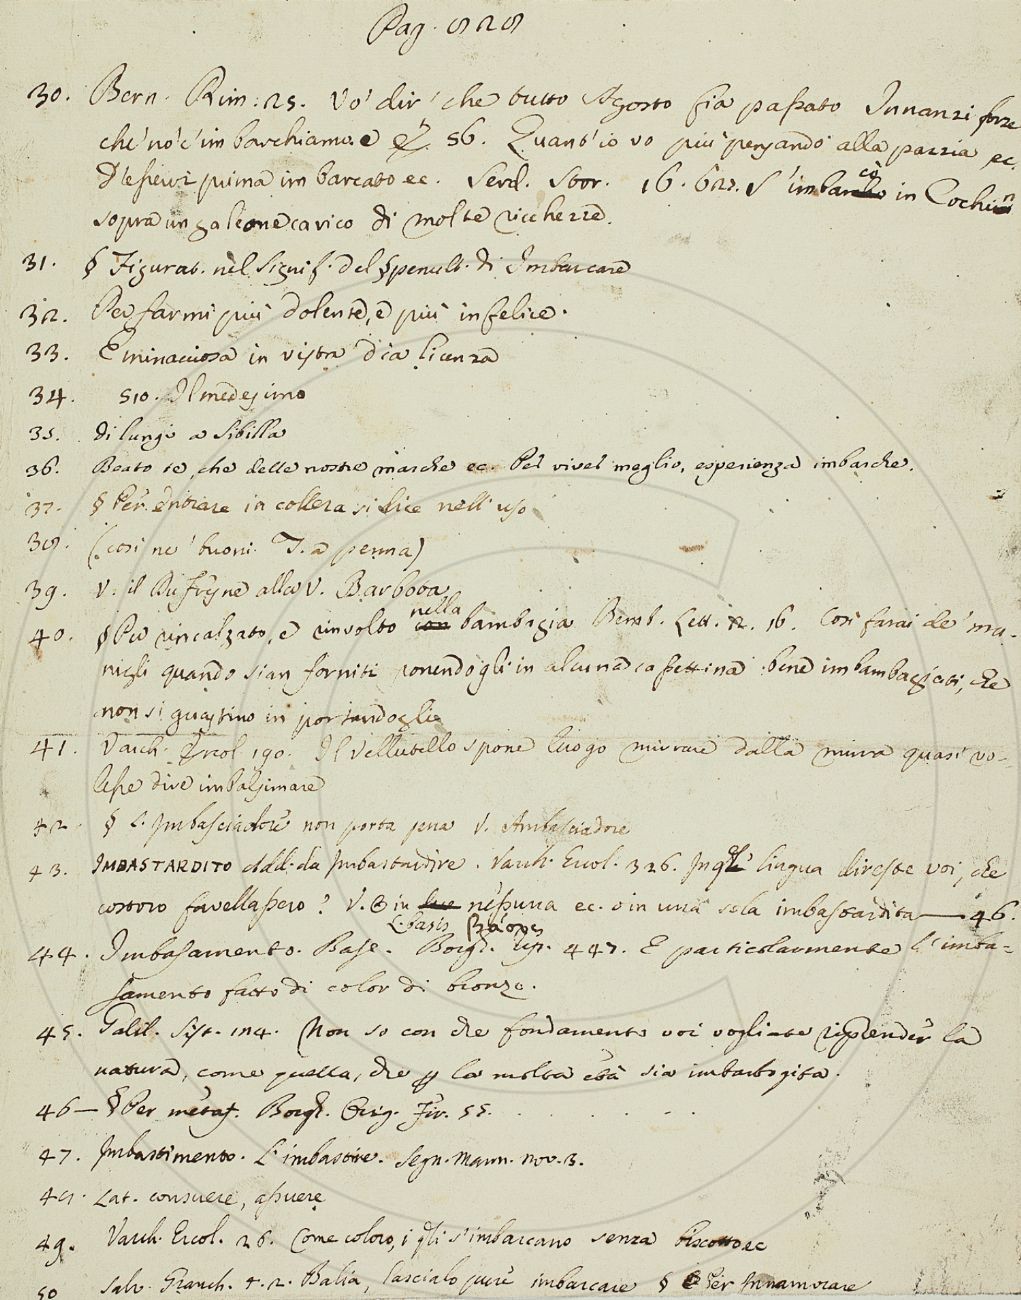 Pag. 828
30. Bern. Rim: 25. Vo' dir' che tutto Agosto sia passato Innanzi forse
che no' c' imbarchiamo. e 56. Quant' io vo più pensando alla pazzia ec.
prima imbarcato ec. Serd. Stor. 16. 627. S' imbarcò in Cochin
sopra un galeone carico di molte ricchezze.
31. § Figurat. nel signif. del § penult. di Imbarcare
32. Per farmi più dolente, e più infelice.
33. E minacciosa in vista dia licenza
34. 510. Il medesimo
35. di lungi a Sibilla
36. Beato te, che delle nostre marche ec. Per viver meglio, esperienza imbarche.
37. § Per entrare in collera si dice nell' uso
38. (così ne' buoni T. a penna)
39. V. il Dufresne alla V. Barbota
40. § Per rincalzato, e rinvolto nella bambagia Bemb. Lett. 2. 16. Così farai de' ma-
nigli quando sian forniti ponendogli in alcuna cassettina bene imbambagiati, che
non si guastino in portandogli
41. Varch. Ercol. 190. Il Vellutello spone luogo mirrare dalla mirra quasi vo-
lesse dire imbalsimare
42. § L' Imbasciadore non porta pena V. Ambasciadore
43. IMBASTARDITO Add. da Imbastardire. Varch. Ercol. 326. In qual lingua direste voi, che
costoro favellassero? V. O in nessuna ec. o in una sola imbastardita — 46.
L. basis βάσις
44. Imbasamento. Base. Borgh. Rip. 447. E particolarmente l' imba-
samento fatto di color di bronzo.
45. Galil. Sist. 114. Non so con che fondamento voi vogliate riprender la
natura, come quella, che per la molta età sia imbarbogita.
46 — § Per metaf. Borgh. Orig. Fir. 55. . . . . . . .
47. Imbastimento. L' imbastire. Segn. Mann. Nov. 3.
48. Lat. consuere, assuere
49. Varch. Ercol. 26. Come coloro, i quali s' imbarcano senza biscotto ec
50 Salv. Granch. 1. 2. Balia, lascialo pure imbarcare § Per Innamorare